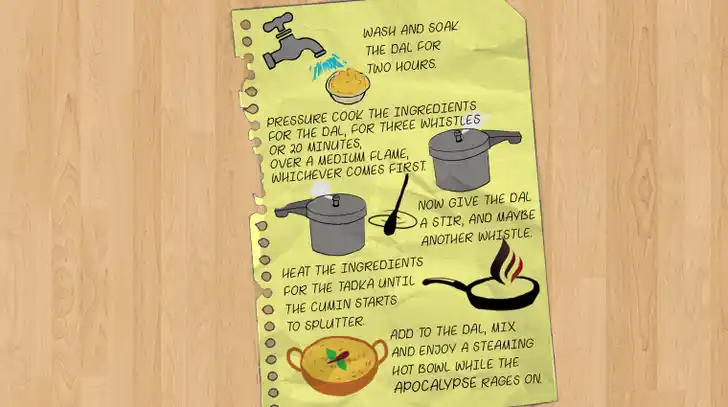 WASH AND SOAK
THE DAL FOR
TWO HOURS.
PRESSURE COOK THE INGREDIENTS
FOR THE DAL, FOR THREE WHISTLES
OR 20 MINUTES,
OVER A MEDIUM FLAME,
WHICHEVER COMES FIRST.
NOW GIVE THE DAL
A STIR, AND MAYBE
ANOTHER WHISTLE.
HEAT THE INGREDIENTS
FOR THE TADKA UNTIL
THE CUMIN STARTS
TO SPLUTTER.
ADD TO THE DAL, MIX
AND ENJOY A STEAMING
HOT BOWL WHILE THE
APOCALYPSE RAGES ON.